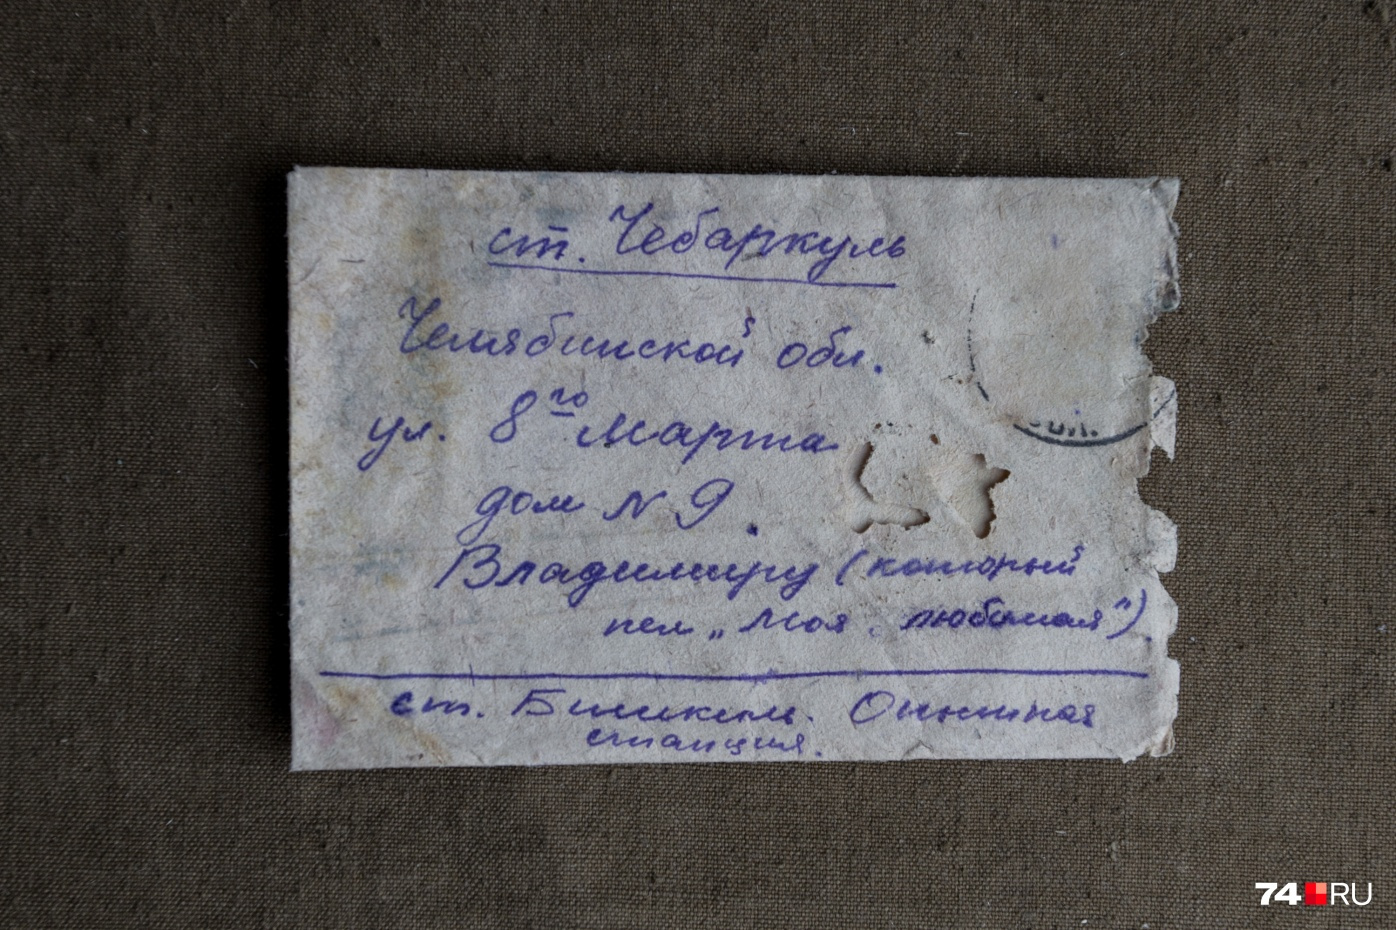 ст. Чебаркуль
Челябинской обл.
ул. 8го Марта
дом № 9.
Владимиру (который
пел „Моя любимая")
ст. Бишкиль. Опытная
станция.
74 RU